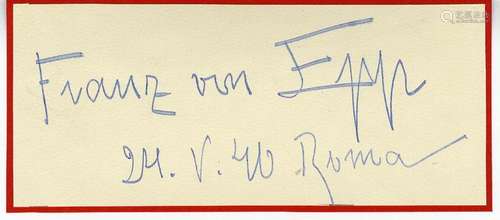 Franz von Epp
24. V. 40 Roma